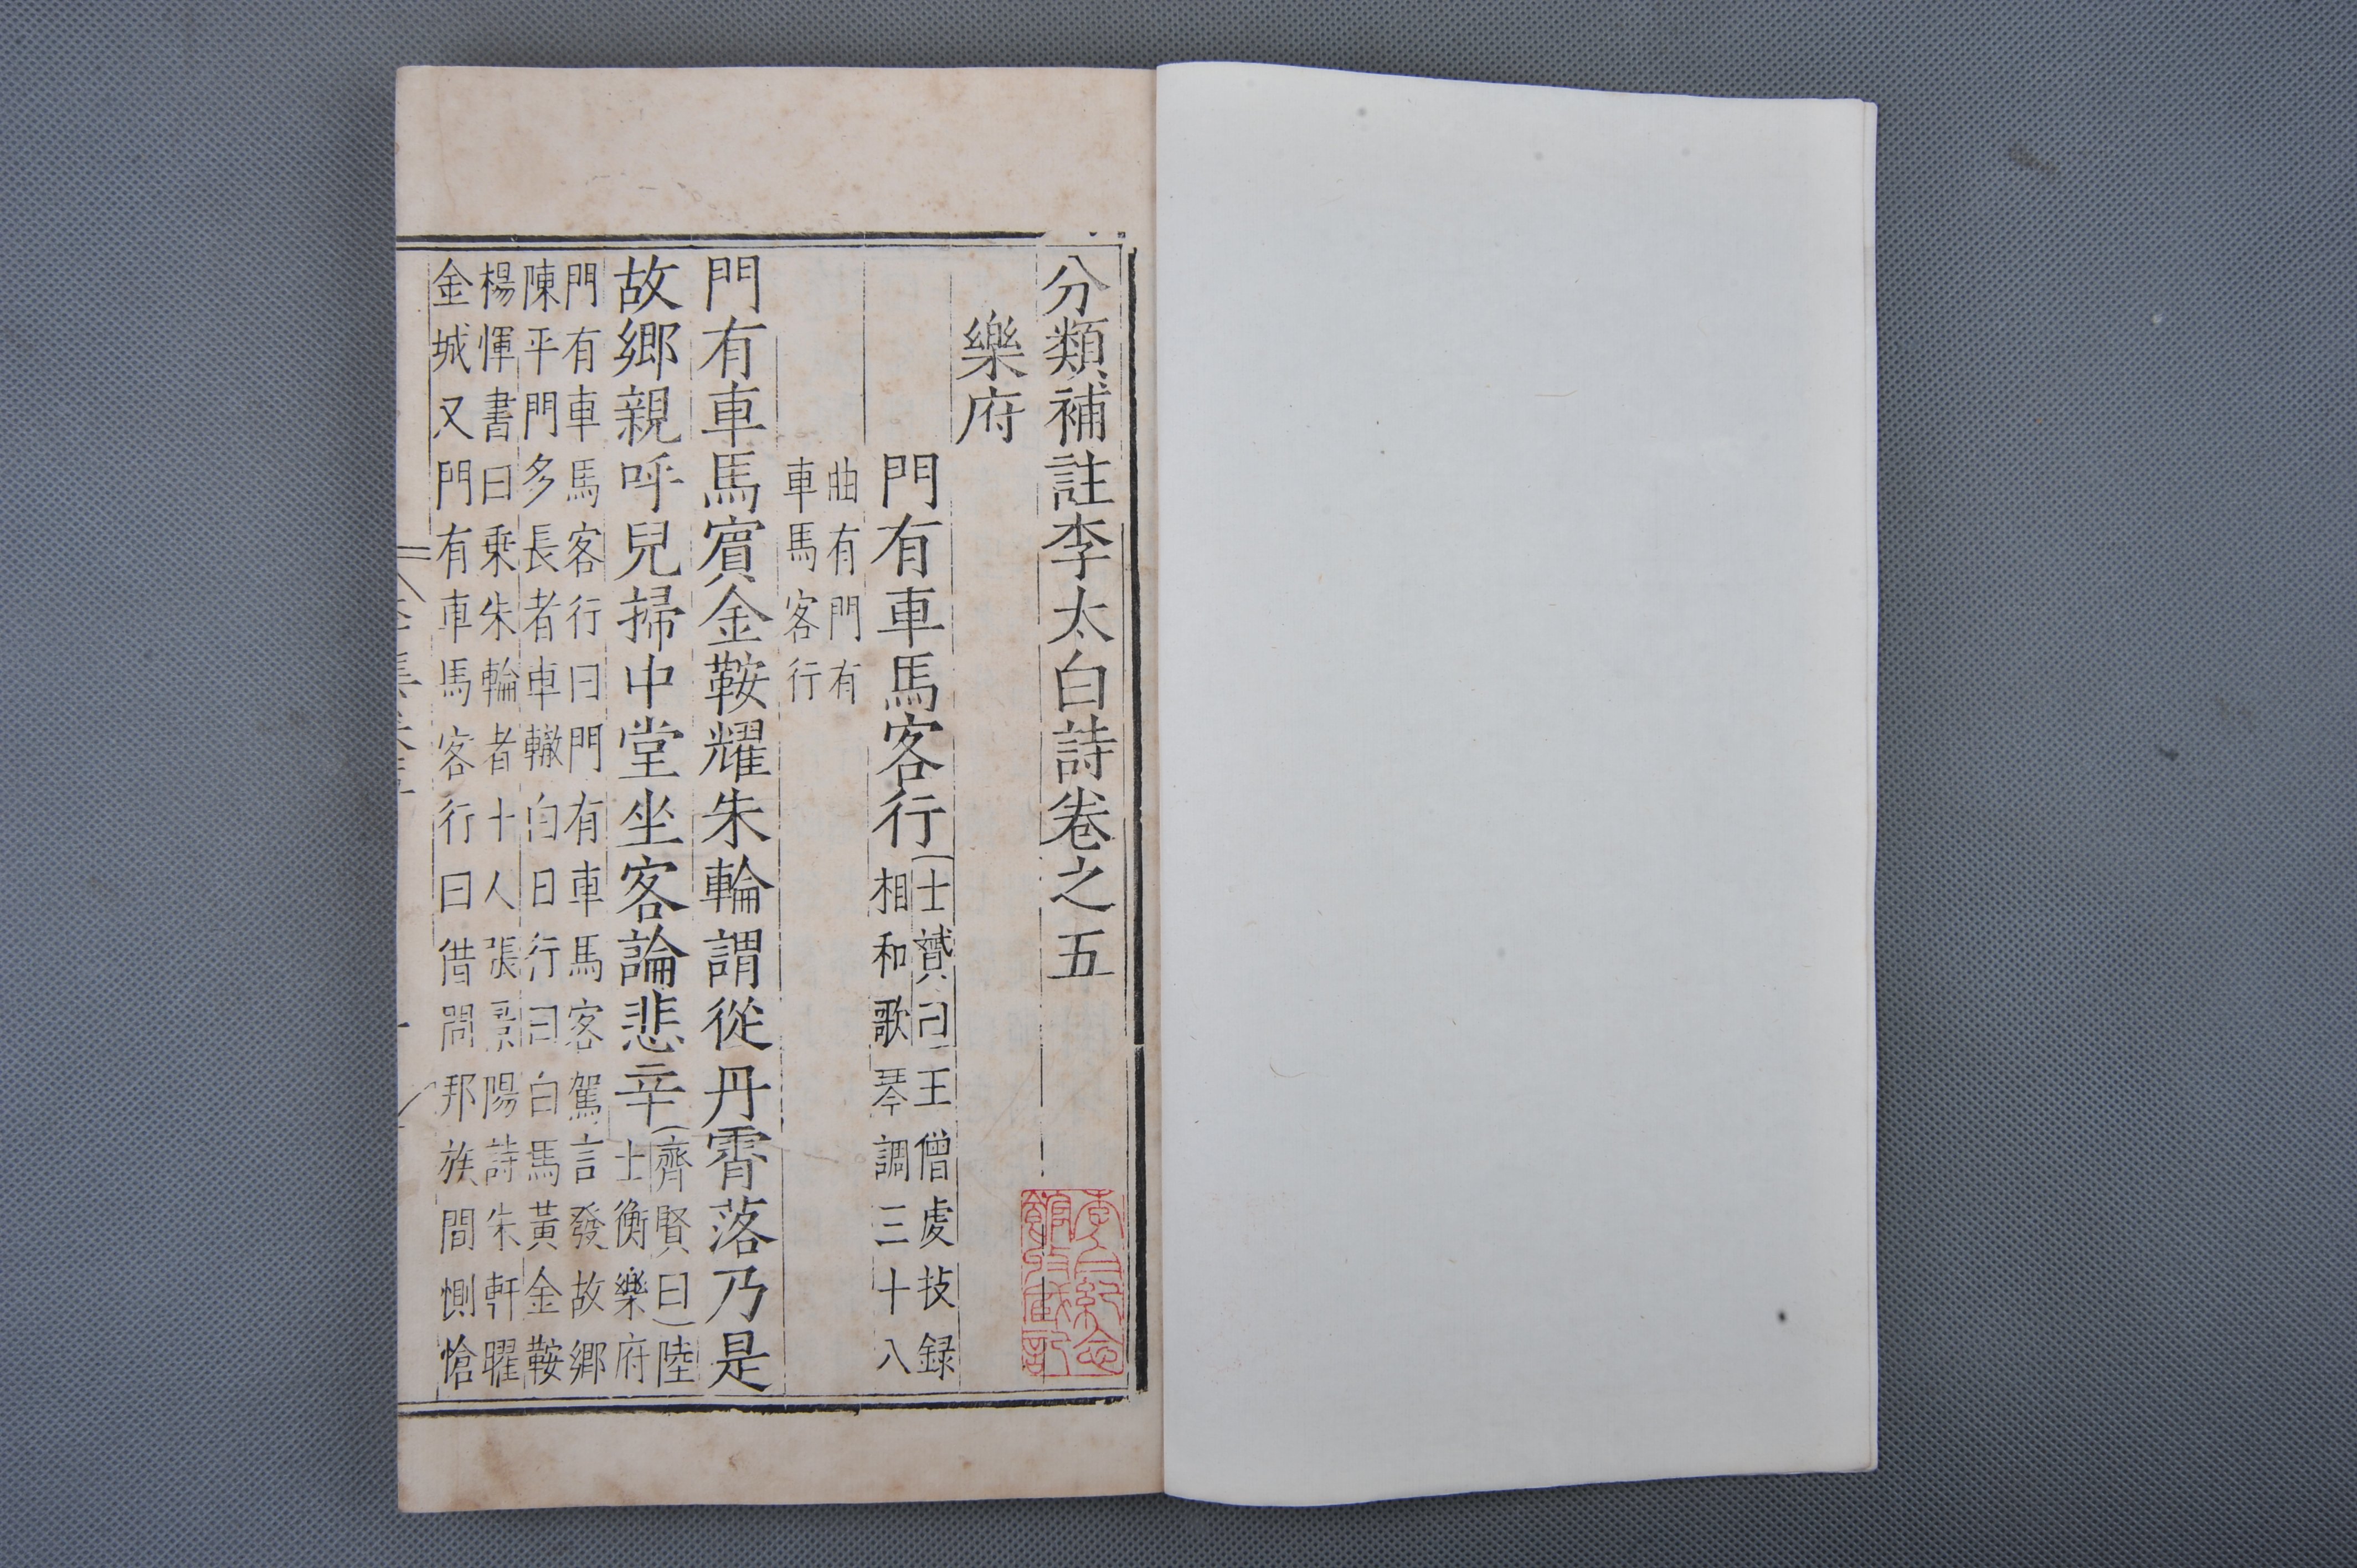 分類補註李太白詩卷之五
樂府
門有車馬客行
士贇曰王僧䖍技録
相和歌琴調三十八
曲有門有
車馬客行
門有車馬賔金鞍耀朱輪謂從丹霄落乃是
故鄉親呼兒掃中堂坐客論悲辛
齊賢曰陸
士衡樂府
門有車馬客行曰門有車馬客駕言發故鄉
陳平門多長者車轍白日行曰白馬黃金鞍
楊惲書曰乗朱輪者十人張景陽詩朱軒曜
金城又門有車馬客行曰借問邦族間惻愴
李白紀念
館收藏記